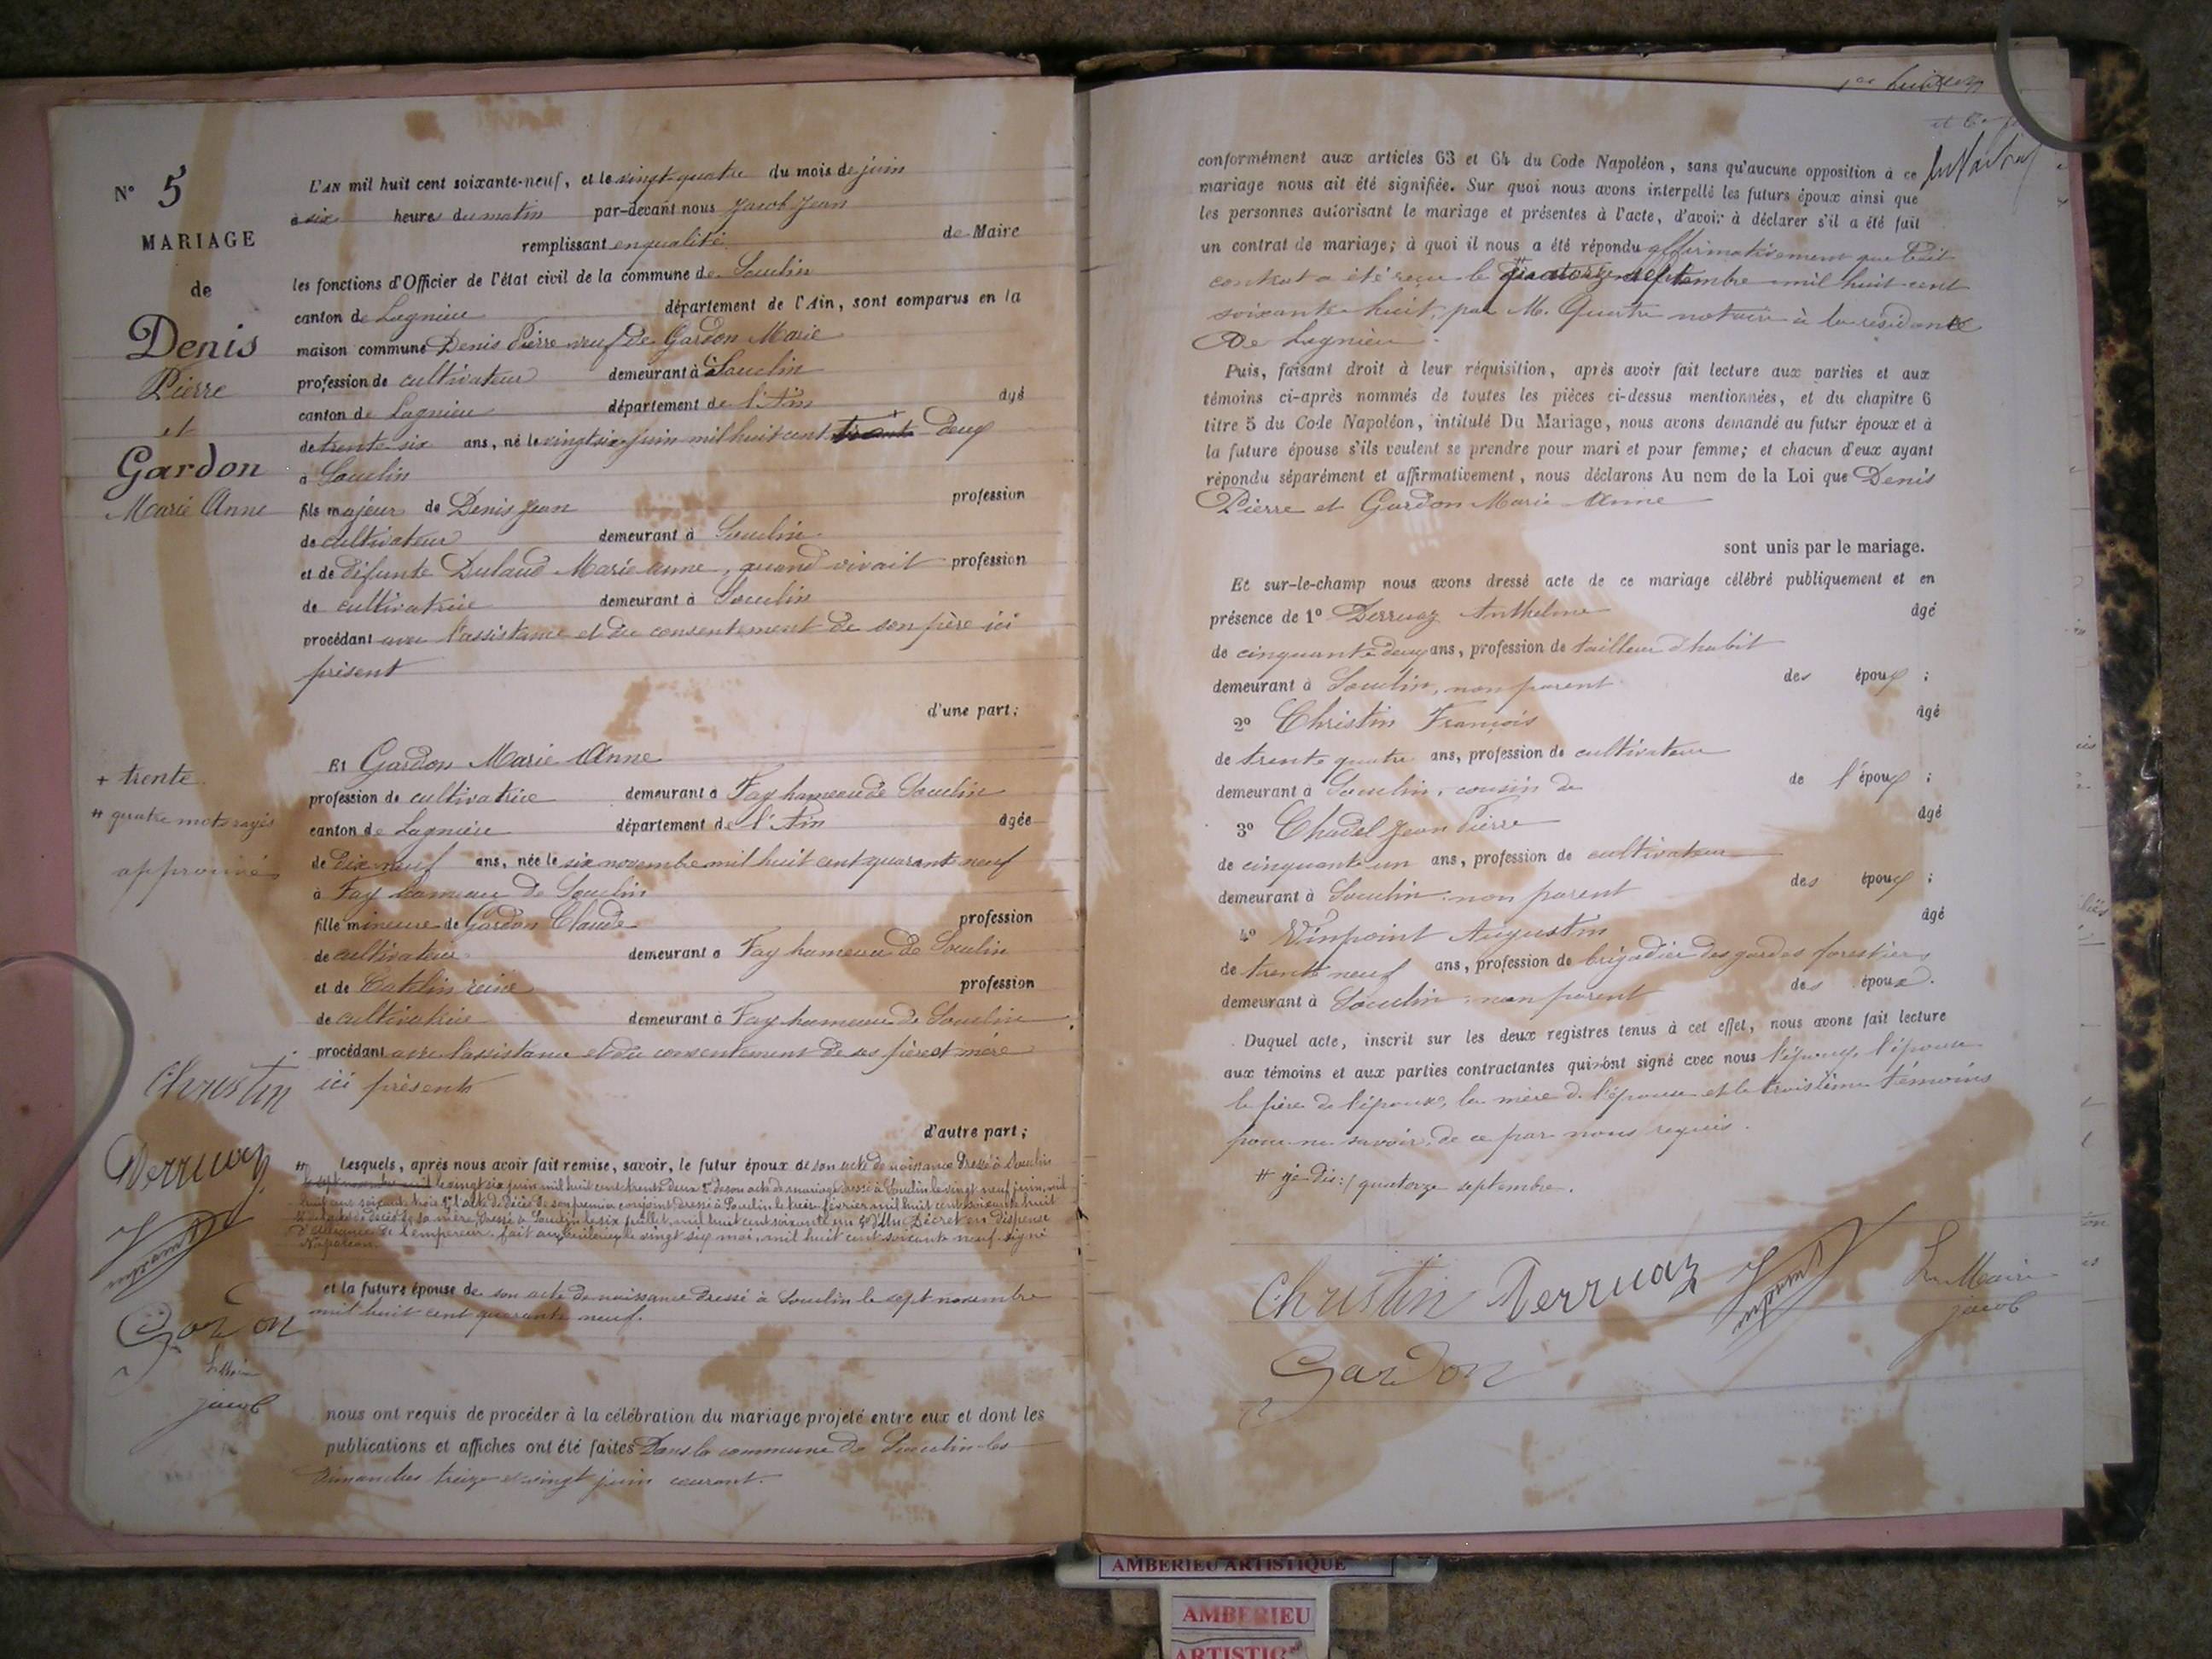 N° 5
MARIAGE
de
Denis
Pierre
et
Gardon
Marie Anne
L'AN mil huit cent soixante-neuf, et le vingt-quatre du mois de juin
à six heures du matin par-devant nous Jacob Jean
remplissant en qualité de Maire
les fonctions d'Officier de l'état civil de la commune de Souclin
canton de Lagnieu département de l'Ain, sont comparus en la
maison commune Denis Pierre veuf de Gardon Marie
profession de cultivateur demeurant à Souclin
canton de Lagnieu département de l'Ain âgé
de trente six ans, né le vingt six juin mil huit cent + deux
à Souclin
fils majeur de Denis Jean profession
de cultivateur demeurant à Souclin
et de défunte Dulaud Marie anne, quand vivait profession
de cultivatrice demeurant à Souclin
procédant avec l'assistance et du consentement de son père ici
présent
d'une part;
Et Gardon Marie Anne
profession de cultivatrice demeurant à Fay hameau de Souclin
canton de Lagnieu département de l'Ain âgée
de dix neuf ans, née le six novembre mil huit cent quarante neuf
à Fay hameau de Souclin
fille mineure de Gardon Claude profession
de cultivateur demeurant à Fay hameau de Souclin
et de Catelin reine profession
de cultivatrice demeurant à Fay hameau de Souclin
procédant avec l'assistance et du consentement de ses père et mère
ici présents
d'autre part;
+ trente
# quatre mots rayés
approuvés
Christin
Derruaz
Gardon
Le Maire
jacob
# Lesquels, après nous avoir fait remise, savoir, le futur époux de son acte de naissance dressé à Souclin
le vingt six juin mil huit cent trente deux 2° de son acte de mariage dressé à Souclin le vingt neuf juin, mil
huit cent soixante trois 3° l'acte de décès de son premier conjoint, dressé à Souclin le treize février mil huit cent soixante huit
de décès de sa mère, dressé à Souclin le six juillet mil huit cent soixante un 5° d'un Décret en dispense
d'alliance de l'empereur, fait aux tuileries le vingt six mai, mil huit cent soixante neuf signé
Napoléon.
et la future épouse de son acte de naissance dressé à Souclin le sept novembre
mil huit cent quarante neuf.
nous ont requis de procéder à la célébration du mariage projeté entre eux et dont les
publications et affiches ont été faites Dans la commune de Souclin les
dimanches treize et vingt juin courant.
conformément aux articles 63 et 64 du Code Napoléon, sans qu'aucune opposition à ce
mariage nous ait été signifiée. Sur quoi nous avons interpellé les futurs époux ainsi que
les personnes autorisant le mariage et présentes à l'acte, d'avoir à déclarer s'il a été fait
un contrat de mariage; à quoi il nous a été répondu affirmativement que ledit
contrat a été reçu le # quatorze septembre mil huit cent
soixante huit, par M. Quatre notaire à la résidence
De Lagnieu.
Puis, faisant droit à leur réquisition, après avoir fait lecture aux parties et aux
témoins ci-après nommés de toutes les pièces ci-dessus mentionnées, et du chapitre 6
titre 5 du Code Napoléon, intitulé Du Mariage, nous avons demandé au futur époux et à
la future épouse s'ils veulent se prendre pour mari et pour femme; et chacun d'eux ayant
répondu séparément et affirmativement, nous déclarons Au nom de la Loi que Denis
Pierre et Gardon Marie Anne
sont unis par le mariage.
Et sur-le-champ nous avons dressé acte de ce mariage célébré publiquement et en
présence de 1° Derruaz Anthelme âgé
de cinquante deux ans, profession de tailleur d'habit
demeurant à Souclin, non parent des époux;
2° Christin François âgé
de trente quatre ans, profession de cultivateur
demeurant à Souclin, cousin de de l'époux;
3° Chadel Jean Pierre âgé
de cinquante un ans, profession de cultivateur
demeurant à Souclin non parent des époux;
4° Vinpoint Augustin âgé
de trente neuf ans, profession de brigadier des gardes forestiers
demeurant à Souclin, non parent des époux.
Duquel acte, inscrit sur les deux registres tenus à cet effet, nous avons fait lecture
aux témoins et aux parties contractantes qui ont signé avec nous l'époux, l'épouse
le père de l'époux, la mère de l'épouse et le troisième témoins
pour ne savoir, de ce par nous requis.
# je dis: / quatorze septembre.
Christin Derruaz
Le Maire
jacob
Gardon
AMBERIEU ARTISTIQUE
AMBERIEU